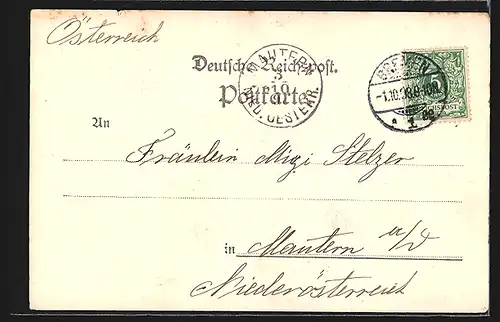 Österreich
Deutsche Reichspost.
Postkarte
MAUTERN
3
10
NIED. OESTERR.
BREMEN
-1.10.98.
* 1
5
An
Fräulein Mizi Stelzer
in Mautern a/d
Niederösterreich